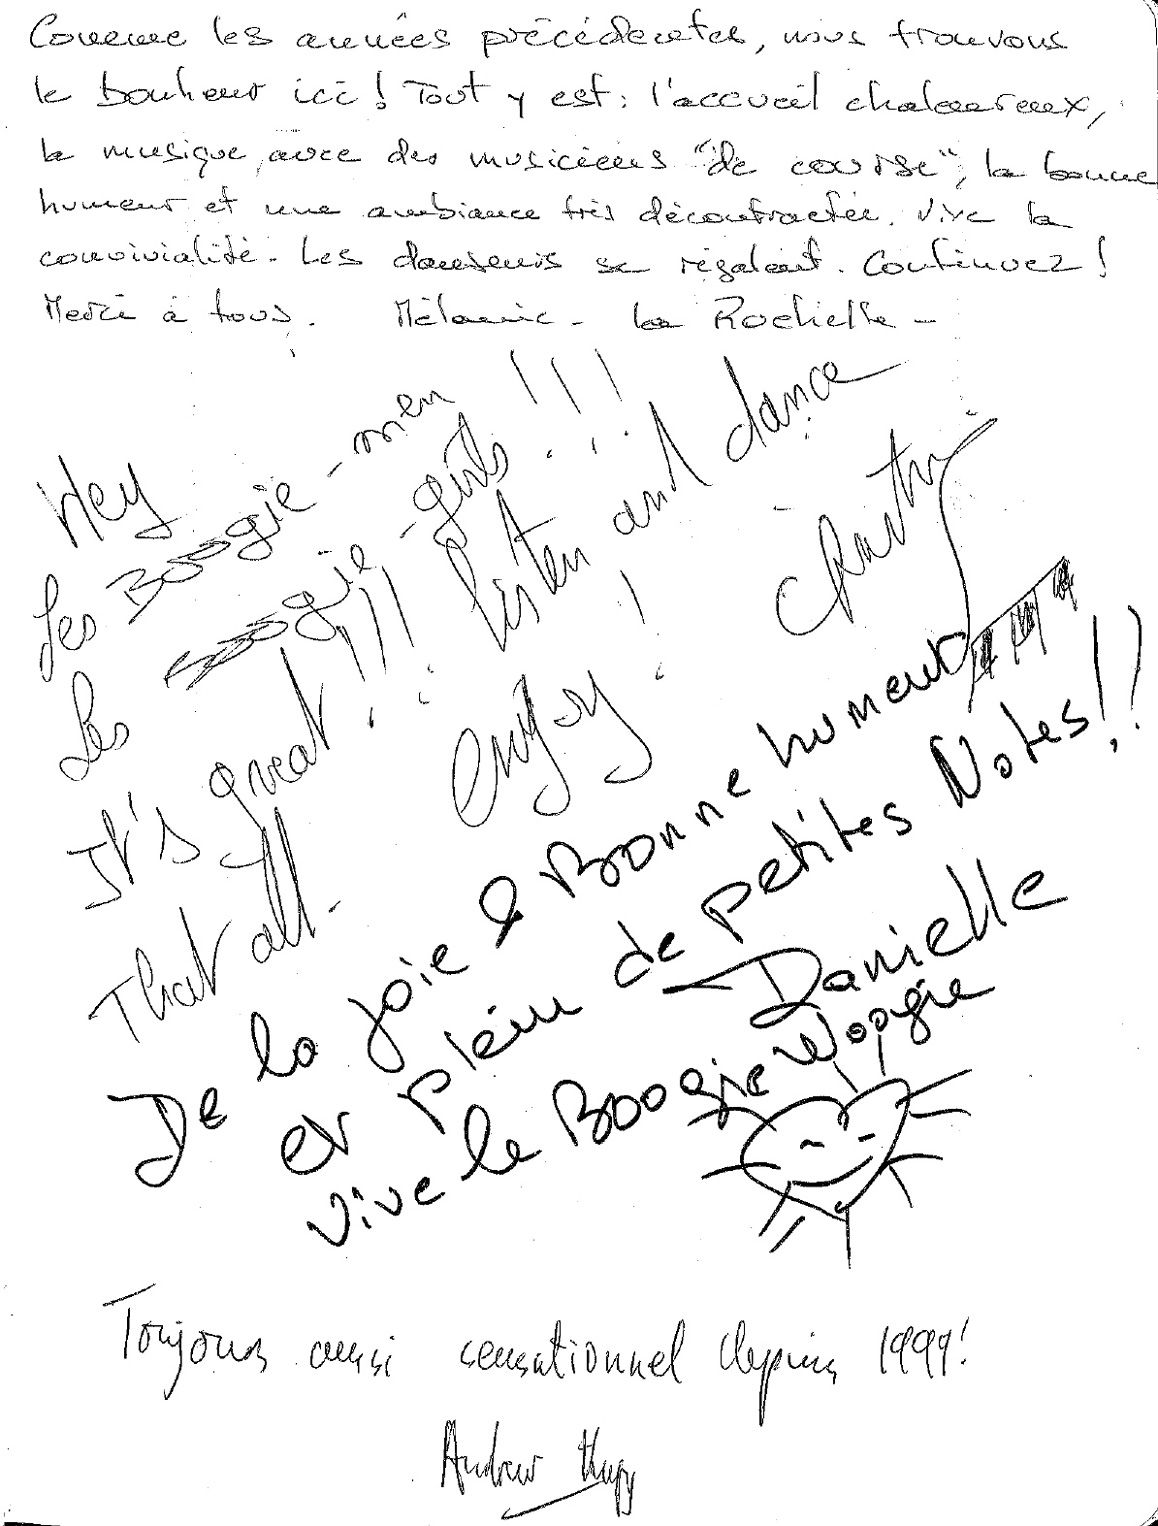 Comme les années précédentes, nous trouvons
le bonheur ici ! Tout y est : l'accueil chaleureux,
la musique avec des musiciens "de course", la bonne
humeur et une ambiance très décontractée. Vive la
convivialité. Les danseurs se régalent. Continuez !
Merci à tous. Mélanie - La Rochelle -
Hey
Les Boogie-men
Les Boogie-girls !!!
It's great !!! Listen and dance
That all. enjoy !
De la joie & Bonne humeur
et plein de petites Notes !!
Danielle
Vive le Boogie Woogie
Toujours aussi sensationnel depuis 1999!
Andrew